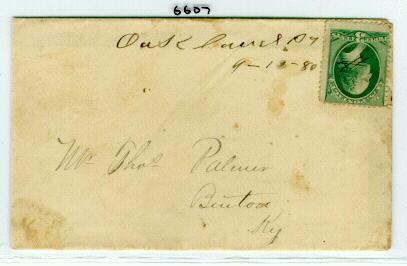 6607
Oak Ky
9-13-80
Mr Thos Palmer
Benton
Ky